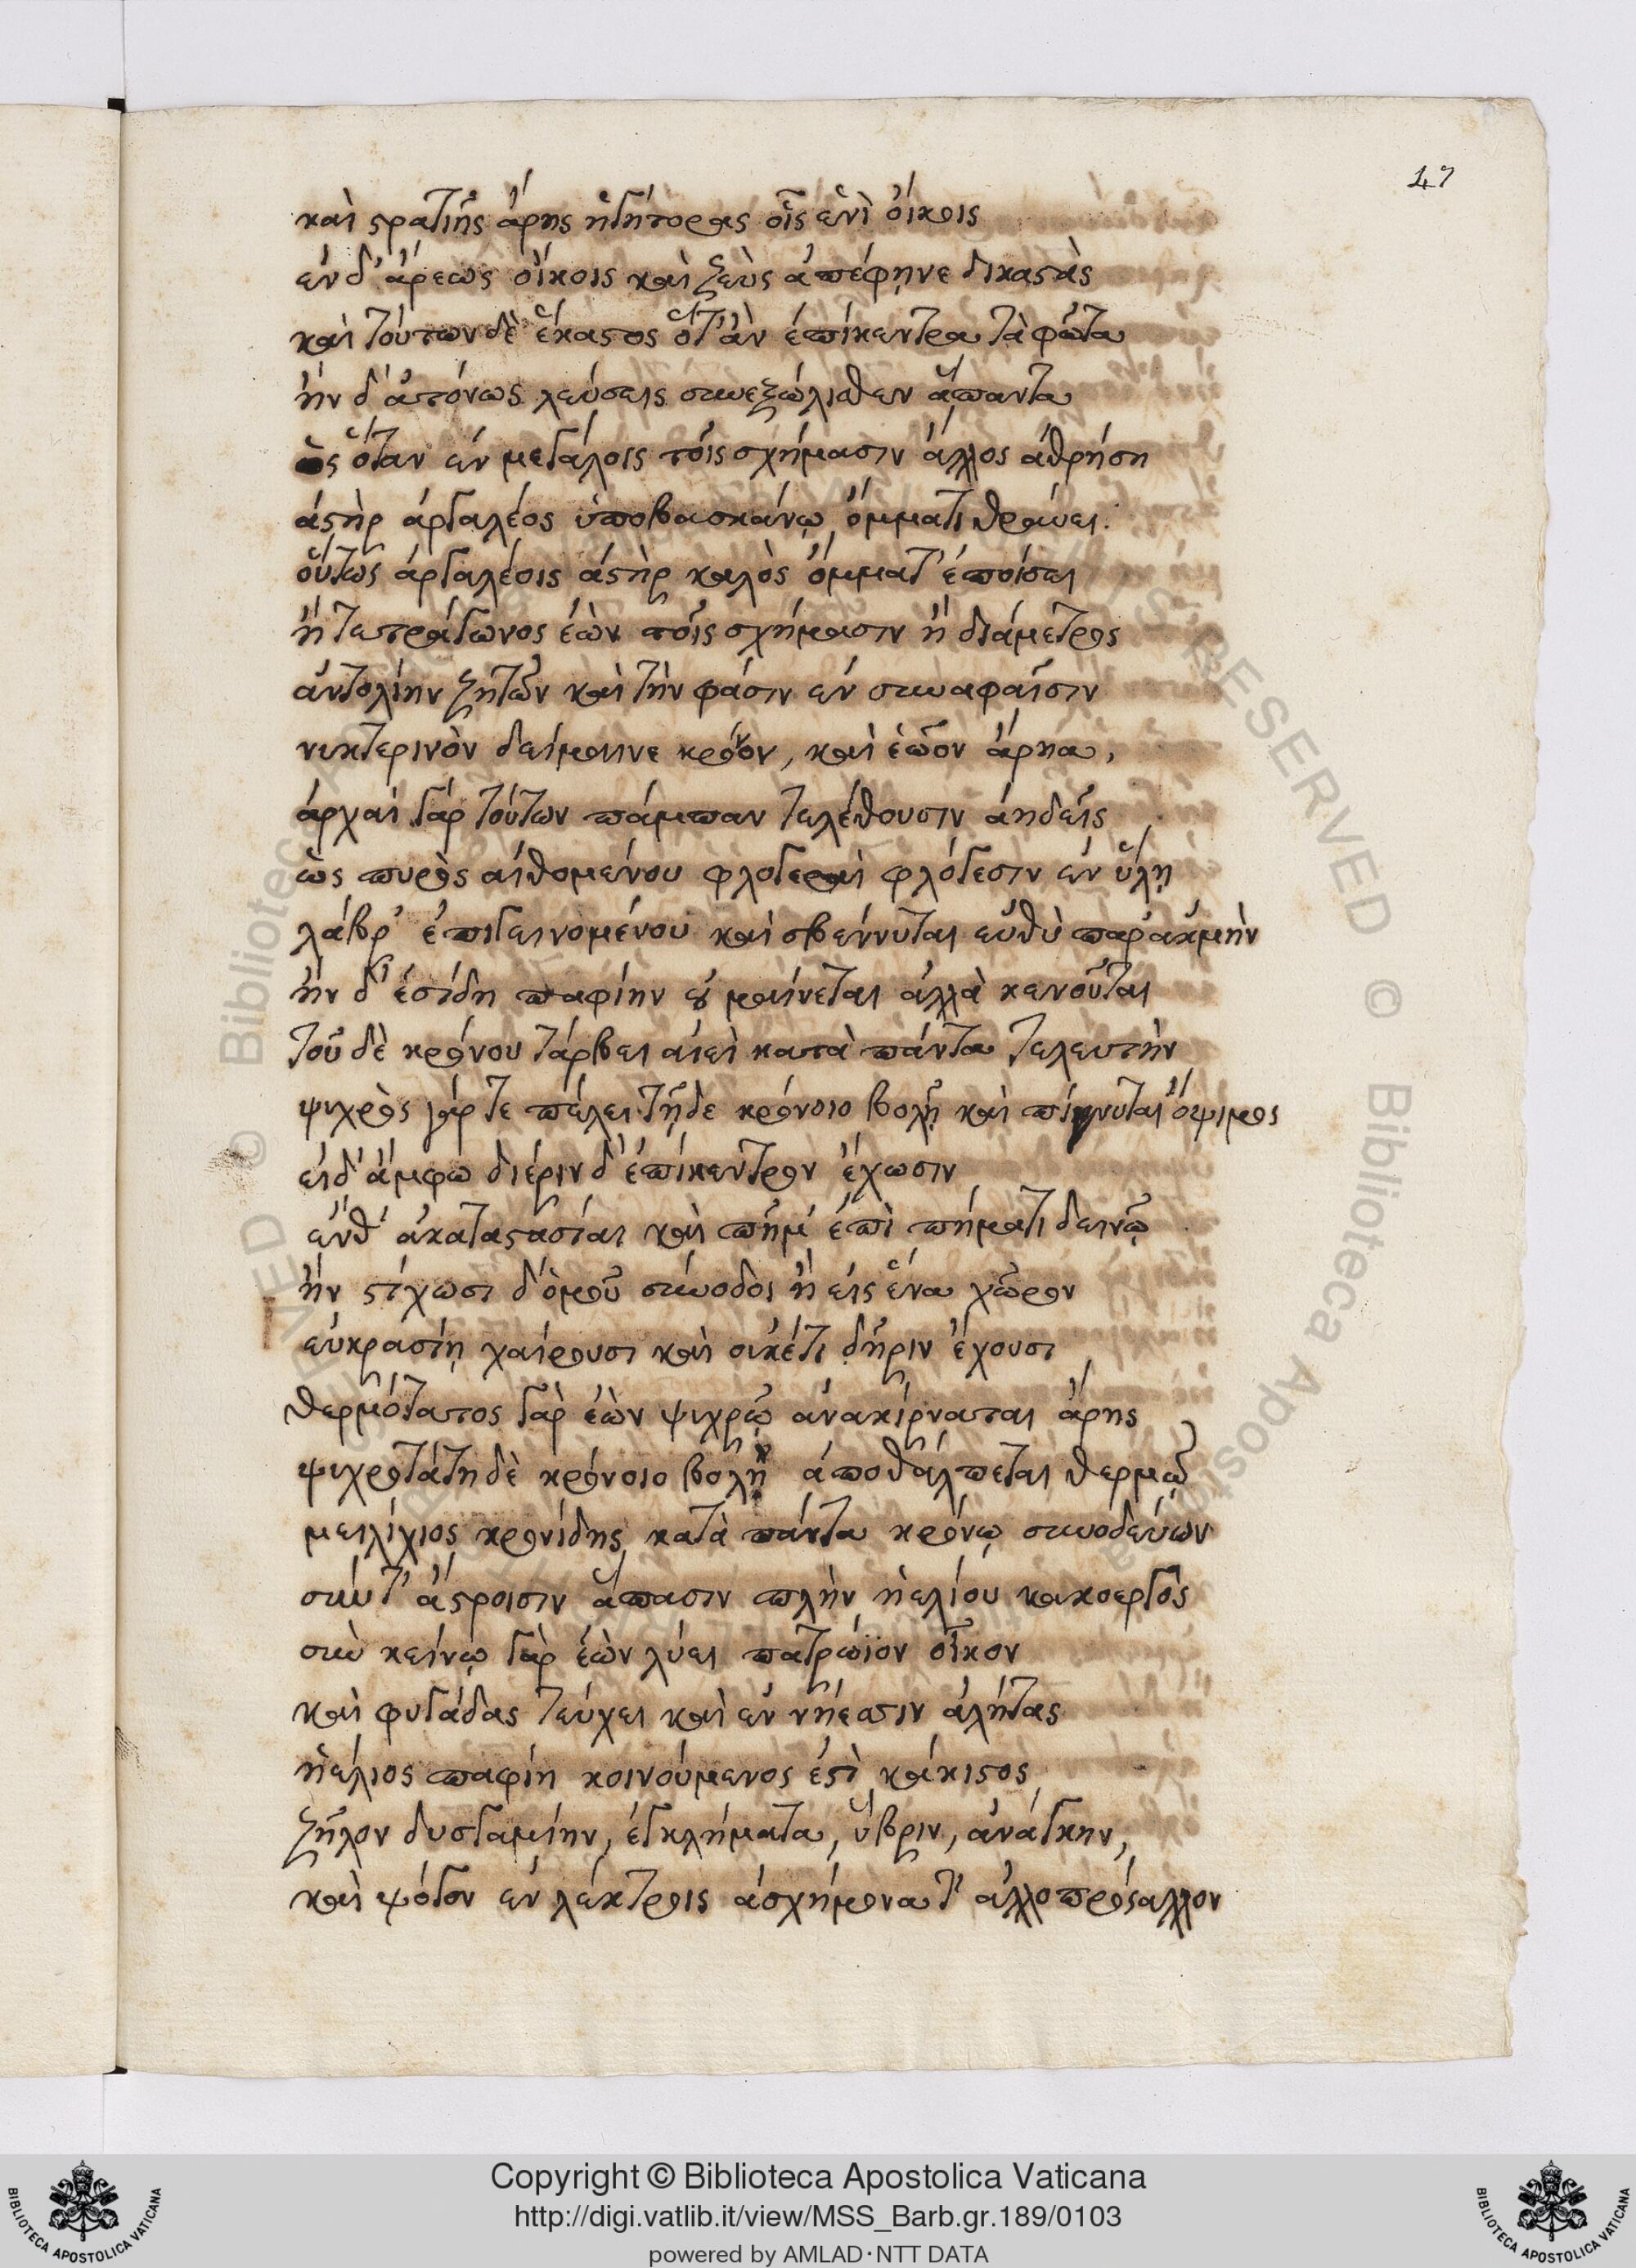 47
καὶ στρατιῆς ἄρης ἡγήτορας οἷς ἐνὶ οἴκοις
ἐν δ' ἄρεως οἴκοις καὶ ζεὺς ἀπέφῃνε δικαστὰς
καὶ τούτων δὲ ἕκαστος ὅτ' ἂν ἐπίκεντρα τὰ φῶτα
ἢν δ' ἀτόνως λεύσεις συνεξώλισθεν ἅπαντα
ὃς ὅταν ἐν μεγάλοις τοῖς σχήμασιν ἄλλος ἀθρήση
ἀστὴρ ἀργαλέος ὑποβασκάνῳ ὄμματι θραύει.
οὕτως ἀργαλέοις ἀστὴρ καλὸς ὄμματ' ἐποίσει
ἢ τετράγωνος ἐὼν τοῖς σχήμασιν ἢ διάμετρος
ἀντολίην ζητῶν καὶ τὴν φάσιν ἐν συναφαῖσιν
νυκτερινὸν δείμαινε κρόνον, καὶ ἑῶον ἄρηα,
ἀρχαὶ γὰρ τούτων πάμπαν τελέθουσιν ἀηδεῖς
ὡς πυρὸς αἰθομένου φλογεραὶ φλόγεσιν ἐν ὕλῃ
λάβρ' ἐπιγεινομένου καὶ σβέννυται εὐθὺ παρ' ἀκμὴν
ἢν δ' ἐσίδη παφίην οὐ μαίνεται ἀλλὰ κενοῦται
τοῦ δὲ κρόνου τάρβει αἰεὶ κατὰ πάντα τελευτὴν
ψυχρὸς γάρ τε πέλει τῇδε κρόνοιο βολῇ καὶ πίγνυται ὄψιμος
εἰ δ' ἄμφω διέριν δ' ἐπίκεντρον ἔχωσιν
ἔνθ' ἀκαταστασίαι καὶ πῆμ' ἐπὶ πήματι δεινῷ
ἢν στίχωσι δ' ὁμοῦ σύνοδοι ἢ εἰς ἕνα χῶρον
εὐκρασίῃ χαίρουσι καὶ οὐκέτι δῆριν ἔχουσι
θερμότατος γὰρ ἐὼν ψυχρῷ ἀνακίρναται ἄρης
ψυχροτάτη δὲ κρόνοιο βολὴ ἀποθάλπεται θερμῷ
μειλίχιος κρονίδης κατὰ πάντα κρόνῳ συνοδεύων
σύν τ' ἄστροισιν ἅπασιν πλὴν ἠελίου κακοεργός
σὺν κείνῳ γὰρ ἐὼν λύει πατρώϊον οἶκον
καὶ φυγάδας τεύχει καὶ ἐν νήεσσιν ἀλήτας
ἠέλιος παφίη κοινούμενος ἐστὶ κάκιστος
ζῆλον δυσγαμίην, ἐγκλήματα, ὕβριν, ἀνάγκην,
καὶ ψόγον ἐν λέκτροις ἀσχήμονα τ' ἀλλοπρόσαλλον
Copyright © Biblioteca Apostolica Vaticana
http://digi.vatlib.it/view/MSS_Barb.gr.189/0103
powered by AMLAD·NTT DATA